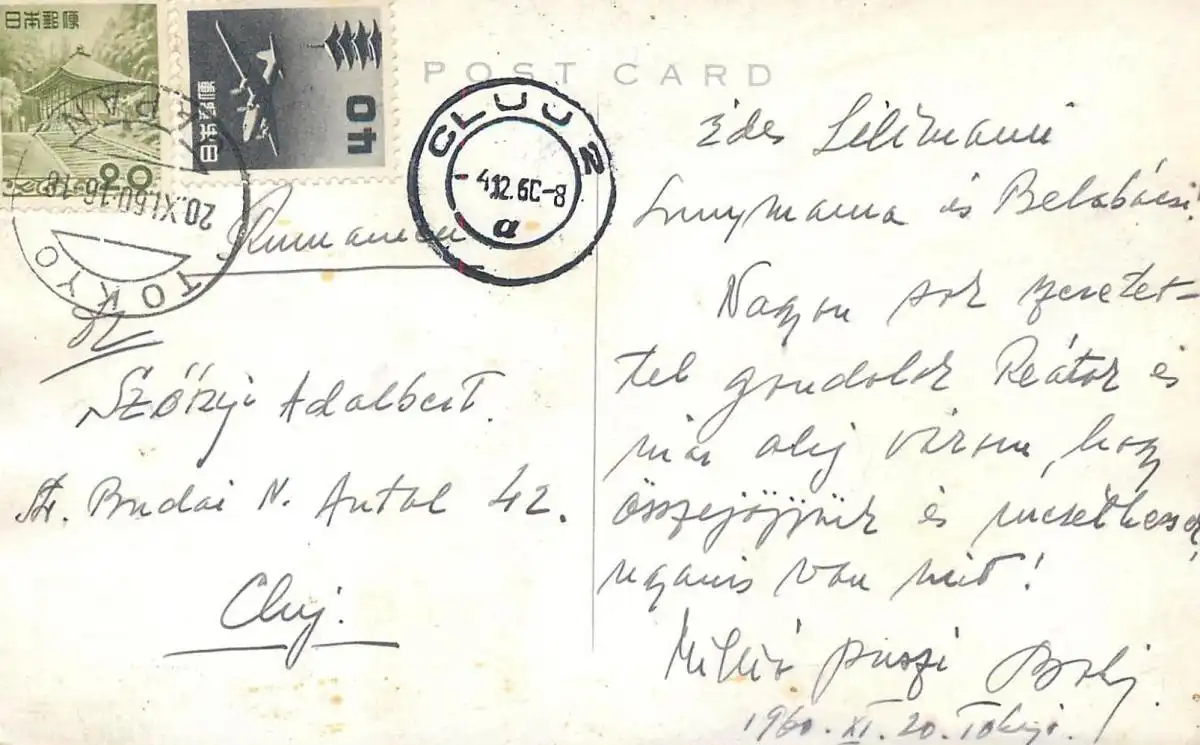 日本郵便
20
日本郵便
40
POST CARD
CLUJ 2
-4.12.60-8
a
JAPAN
20.XI.60.16-18
TOKYO
Rumanien
Szőzyi Adalbert.
Str. Budai N. Antal 42.
Cluj.
Édes Lilimami
és Belabácsi!
Nagyon sok szeretet-
tel gondolok Reátok és
már alig várom, hogy
összejöjjünk és mesélhessek
ugyanis van mit!
Millió puszi
1960. XI. 20. Tokyo.